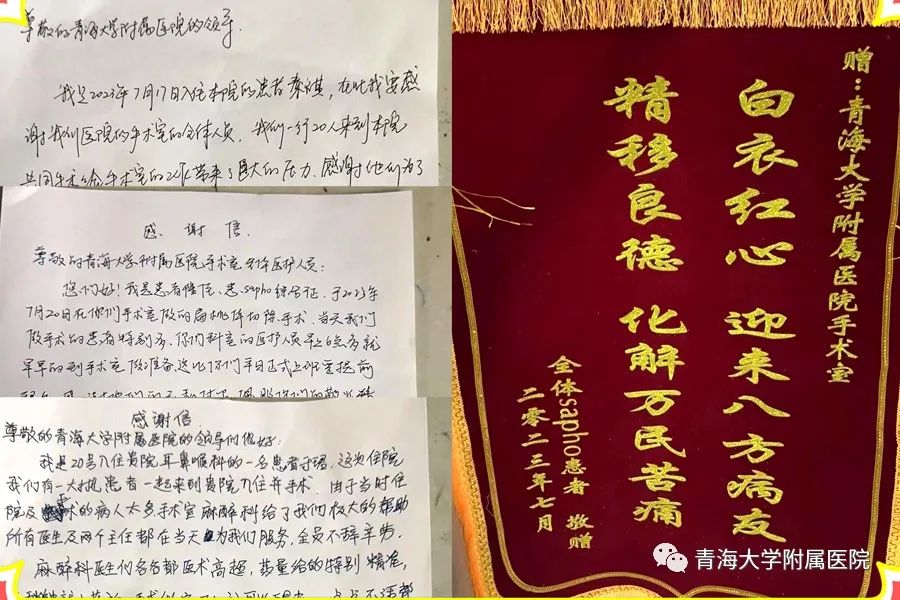 尊敬的青海大学附属医院的领导.
我是2023年7月17日入住本院的患者 在此我要感
谢我们医院的手术室的全体人员, 我们一行20人来到本院
共同手术给手术室的工作带来了巨大的压力. 感谢他们为了
感 谢 信.
尊敬的青海大学附属医院手术室全体医护人员:
您们好! 我是患者 患sapho综合征. 于2023年
7月20日在你们手术室做的扁桃体切除手术. 当天我们
做手术的患者特别多. 你们科室的医护人员早上6点多就
早早的到手术室做准备 这比你们平日正式上班要提前
感谢信
尊敬的青海大学附属医院的领导们您好:
我是20号入住贵院耳鼻喉科的一名患者 这次住院
我们有一大批患者一起来到贵院入住并手术. 由于当时住
院及 术的病人太多手术室麻醉科给了我们极大的帮助
所有医生及两个主任都在当天为我们服务, 全员不辞辛劳.
麻醉科医生们各各都医术高超, 药量给的特别精准,
赠:青海大学附属医院手术室
白衣红心 迎来八方病友
精移良德 化解万民苦痛
全体sapho患者 敬赠
二零二三年七月
青海大学附属医院